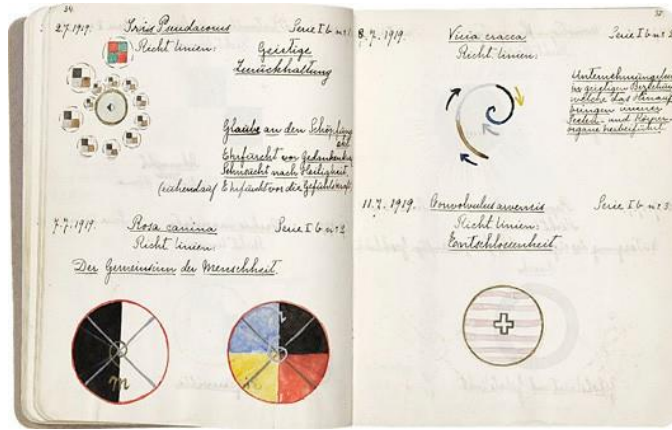 34
2.7.1919. Iris Pseudacorus Serie I b. nr 1.
Richt linien: Geistige
Zurückhaltung
Glaube an den Schöpfung
Ehrfurcht vor Gedanken
Sehnsucht nach Heiligkeit
Ehrfurcht vor die Gefühlskraft
7.7.1919. Rosa canina Serie I b. nr 2
Richt linien:
Der Gemeinsinn der Menschheit.
m
8.7.1919. Vicia cracca Serie I b. nr
Richt linien:
der geistigen Beziehung
welche das Hinauf
bringen unserer
Seelen- und Körper
organe herbeiführt
11.7.1919. Convolvulus arvensis Serie I b. nr 3.
Richt linien:
Entschlossenheit